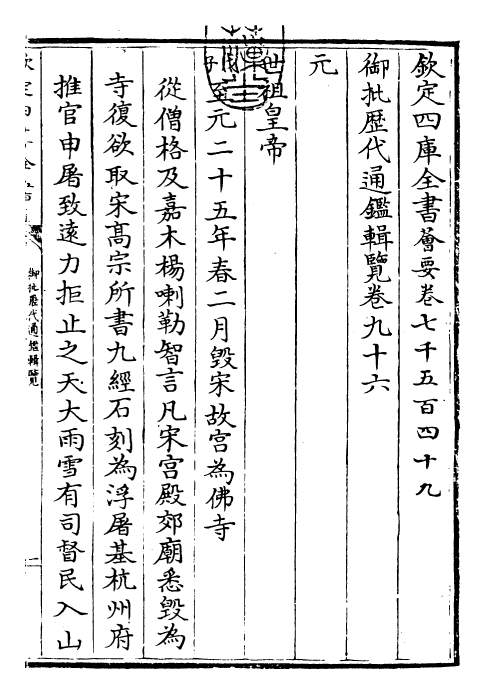 欽定四庫全書薈要卷七千五百四十九
御批歷代通鑑輯覽卷九十六
元
世祖皇帝
至元二十五年春二月毀宋故宫為佛寺
從僧格及嘉木楊喇勒智言凡宋宫殿郊廟悉毀為
寺復欲取宋髙宗所書九經石刻為浮屠基杭州府
推官申屠致遠力拒止之天大雨雪有司督民入山
御批歷代通鑑輯覽